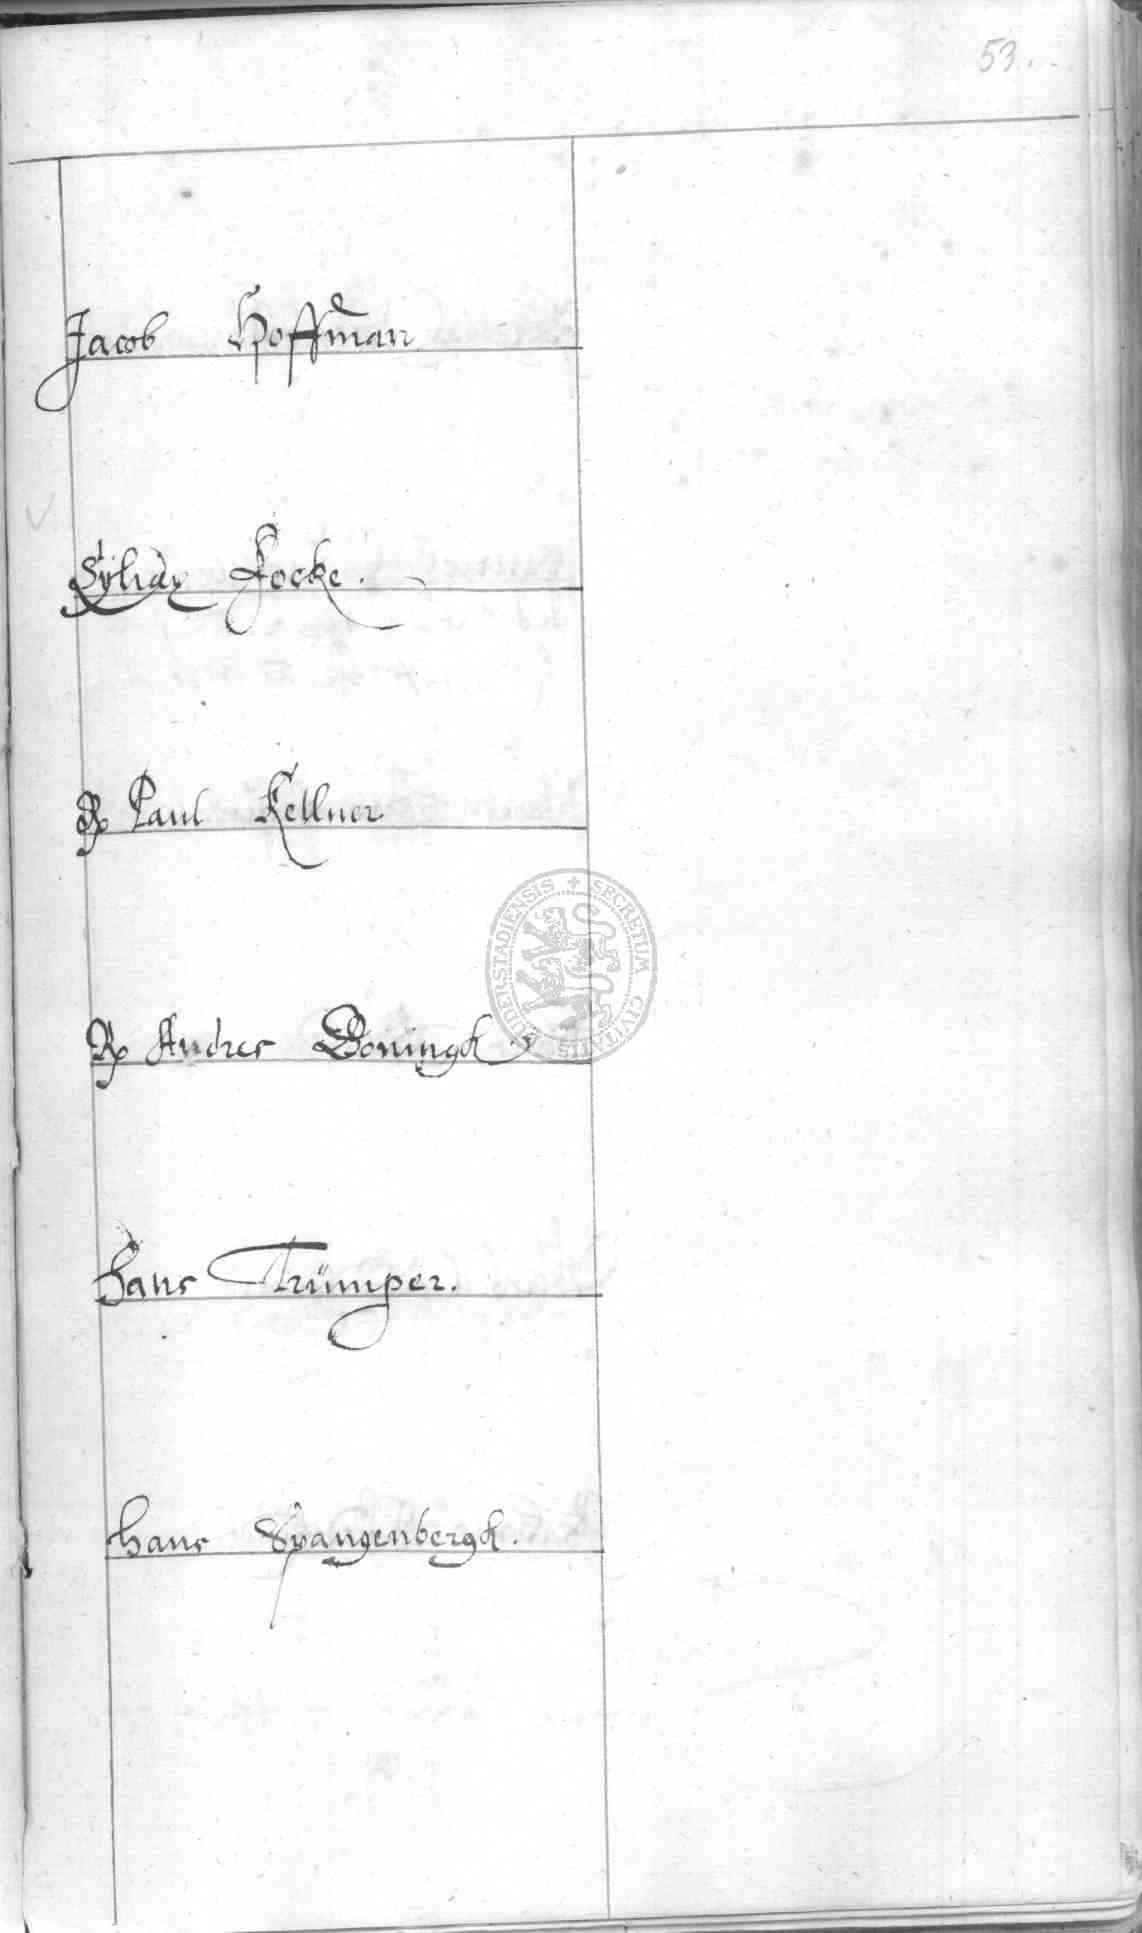 53.
Jacob Hoffman
Focke.
Paul Kellner
Andres Boningk
Hans Trümper.
Hans Spangenbergk.
SECRETUM CIVITATIS DUDERSTADIENSIS